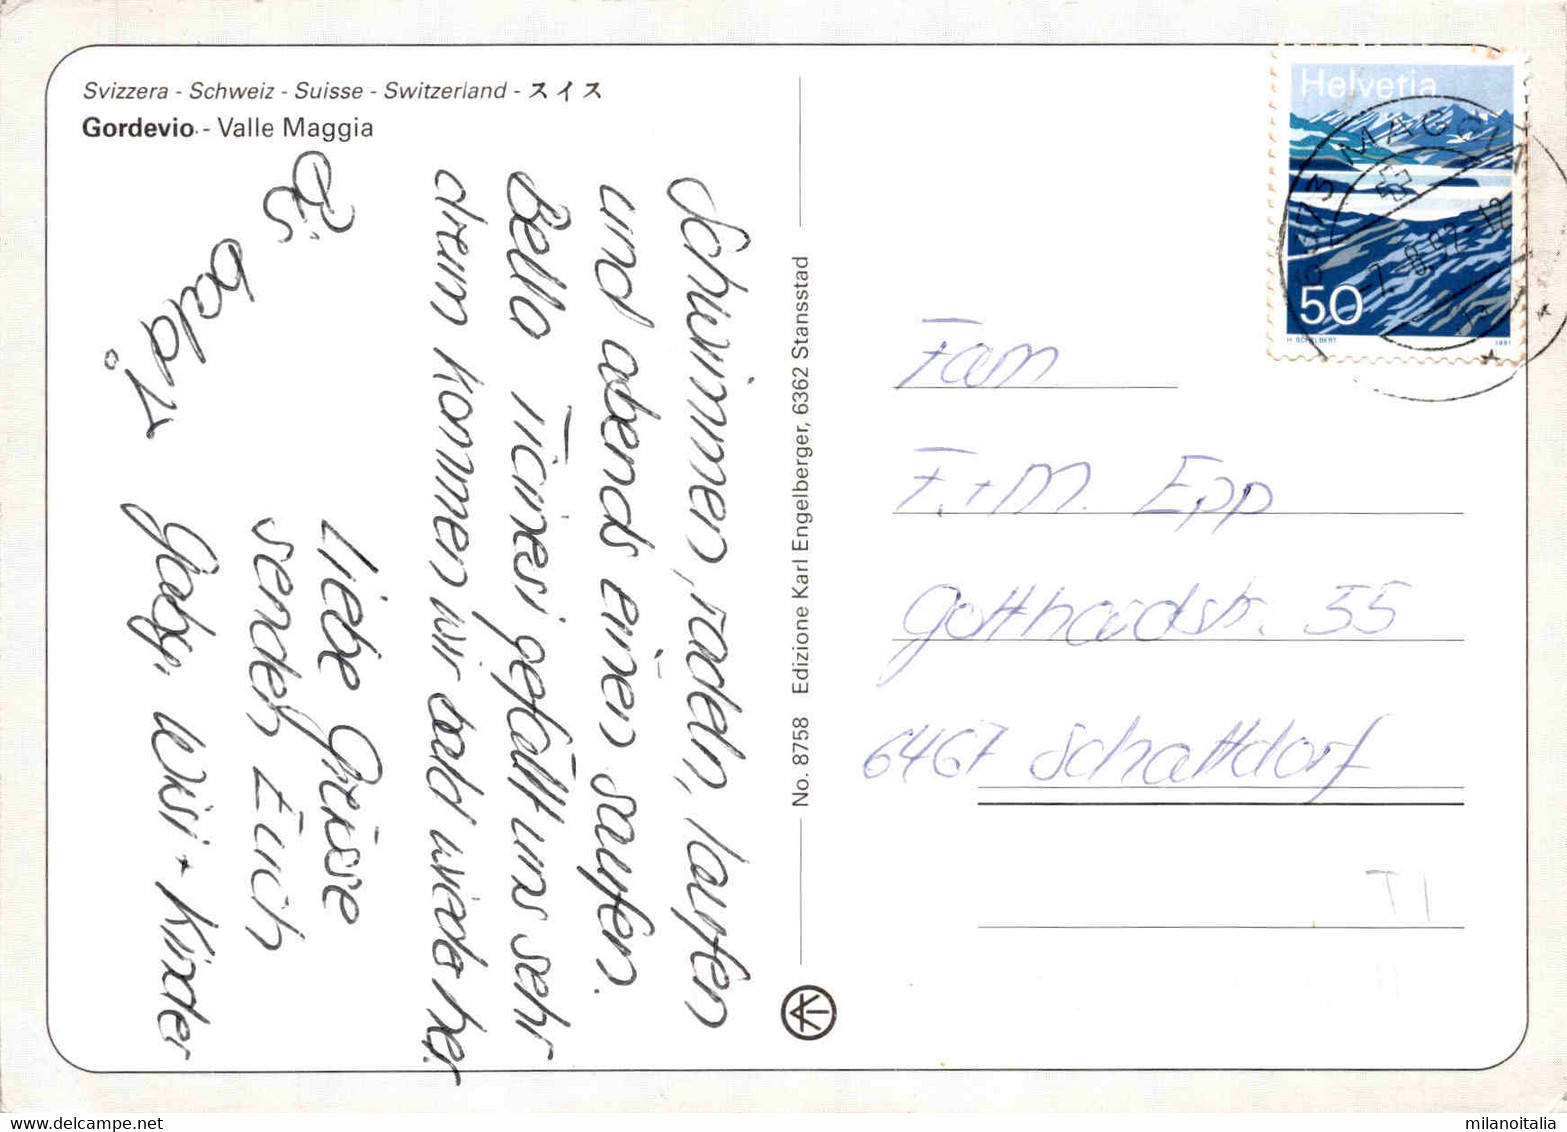 Svizzera - Schweiz - Suisse - Switzerland - スイス
Gordevio - Valle Maggia
Schwimmen, radeln, laufen
und abends einen saufen.
Bello Ticinesi gefällt uns sehr
drum kommen wir bald wieder her.
Bis
bald!
Liebe Grüsse
senden Euch
Gaby, Wisi + Kinder
No. 8758 Edizione Karl Engelberger, 6362 Stansstad
Helvetia
50
H SCHELBERT 1991
6673 MAGGIA
-7.-8.92-12
Fam
F. + M. Epp
Gotthardstr. 55
6467 Schattdorf
TI
www.delcampe.net
milanoitalia